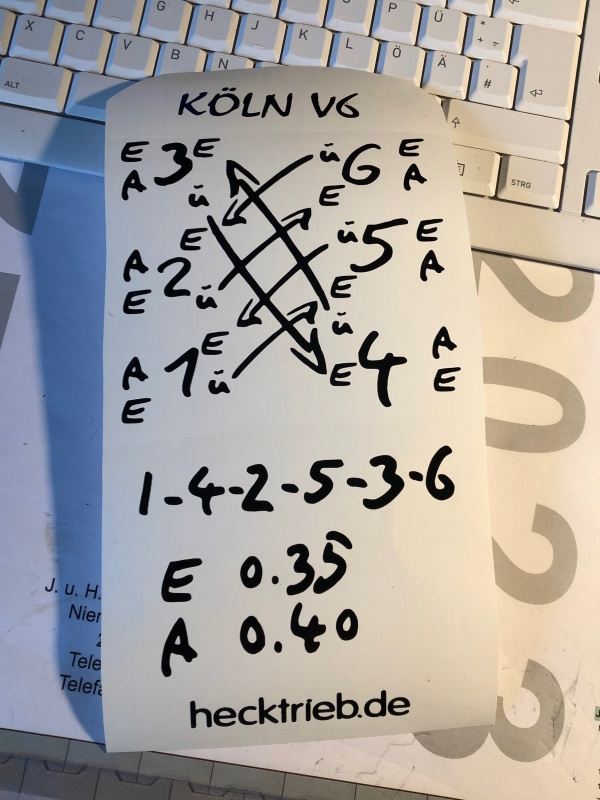 P Ü * + ~
X C V B N
J K L Ö Ä ' #
ALT
STRG
KÖLN V6
E 3 E ü 6 E
A ü E A
A E ü 5 E
2 A
E ü E
ü
A 1 E E 4 A
E ü E
1-4-2-5-3-6
E 0.35
A 0.40
hecktrieb.de
J. u. H.
Nier
Tele
Telefa
2023